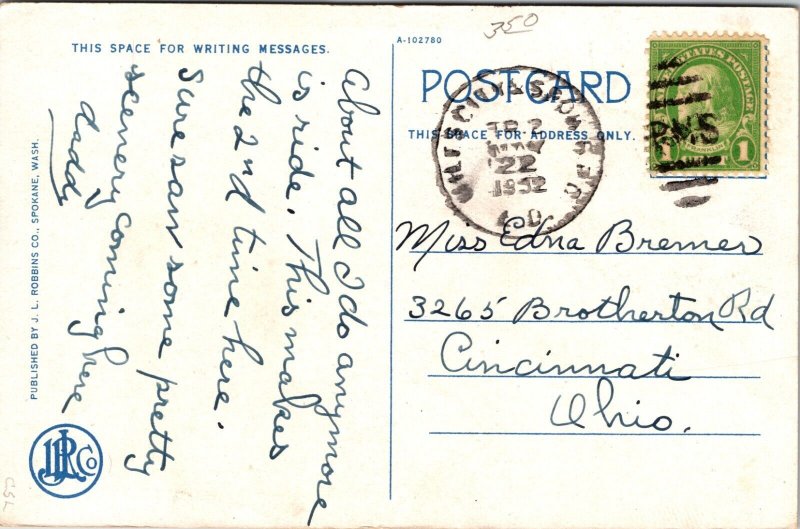 350
A-102780
THIS SPACE FOR WRITING MESSAGES.
POSTCARD
THIS SPACE FOR ADDRESS ONLY.
About all I do anymore
is ride. This makes
the 2nd time here.
Sure saw some pretty
scenery coming here
daddy
Miss Edna Bremer
3265 Brotherton Rd
Cincinnati
Ohio.
22
1932
UNITED STATES POSTAGE
FRANKLIN
1 1
R.M.S
PUBLISHED BY J. L. ROBBINS CO., SPOKANE, WASH.
JLR Co